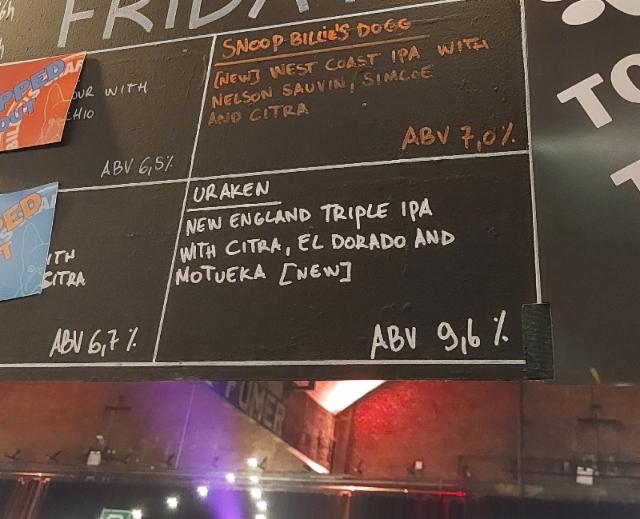 FRIDA
SNOOP BILLIE'S DOGG
[NEW] WEST COAST IPA WITH
NELSON SAUVIN, SIMCOE
AND CITRA
ABV 7,0%
OUR WITH
ABV 6,5%
URAKEN
NEW ENGLAND TRIPLE IPA
WITH CITRA, EL DORADO AND
MOTUEKA [NEW]
ABV 9,6%
ITH
CITRA
ABV 6,7%
PPED
OUT
PED
T
TO
T
FUMER